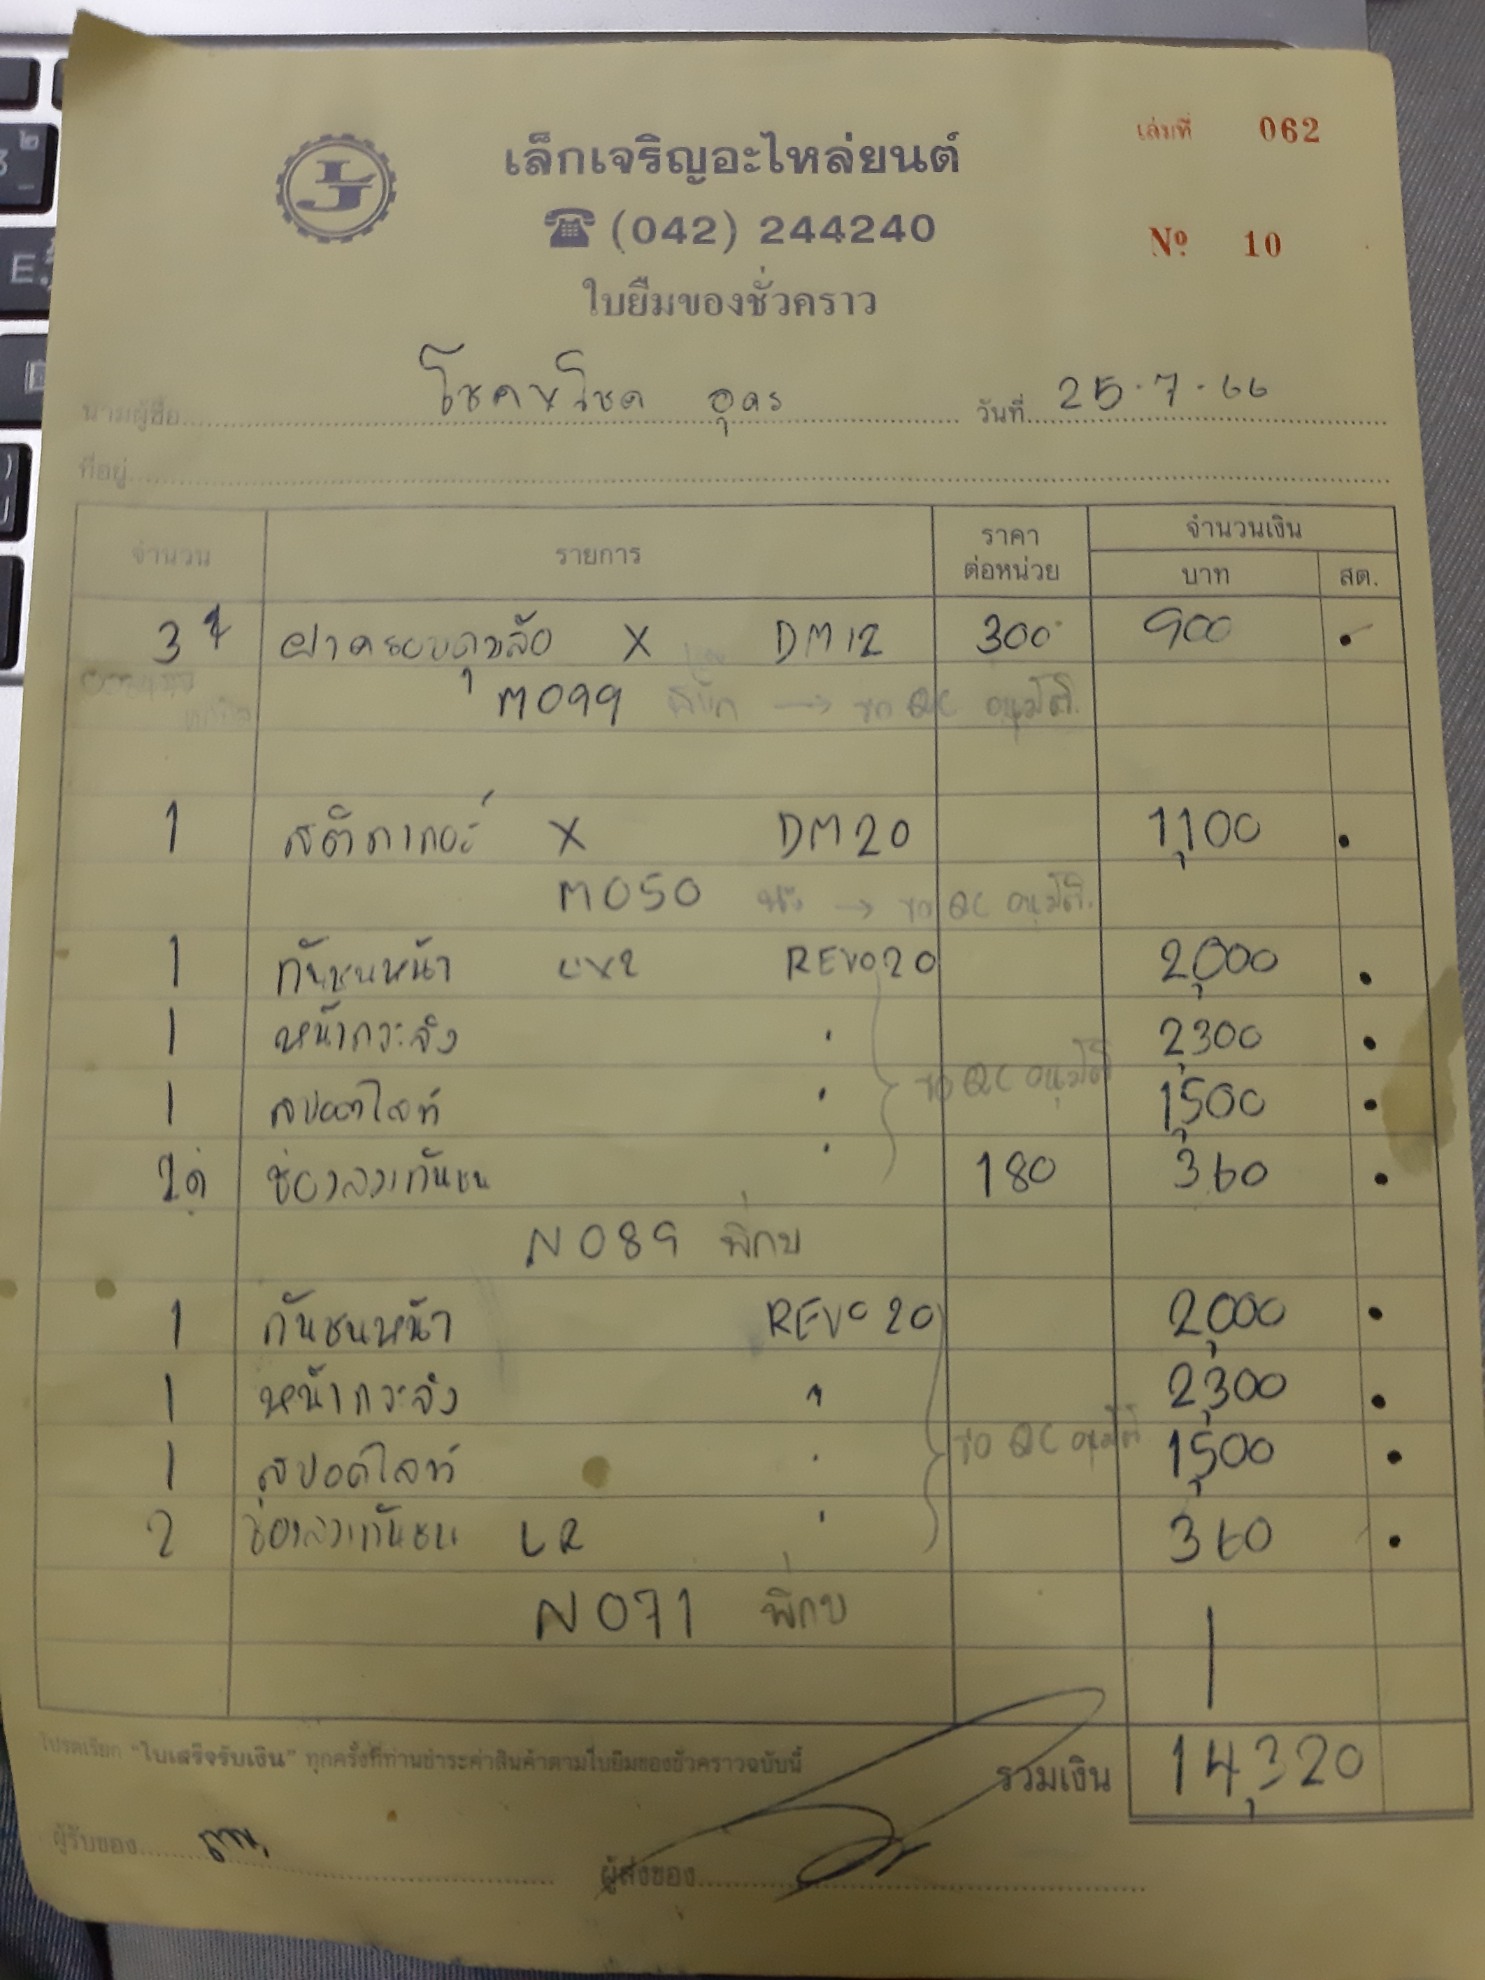 เล่มที่ 062
เล็กเจริญอะไหล่ยนต์
(042) 244240
Nº 10
ใบยืมของชั่วคราว
นามผู้ซื้อ โชคชโชค อุดร วันที่ 25.7.66
ที่อยู่
จำนวน รายการ ราคาต่อหน่วย จำนวนเงิน
บาท สต.
3 ฝาครอบดุมล้อ X DM12 300 900
M099 → รอ QC อนุมัติ.
1 สติกเกอร์ X DM20 1,100
M050 → รอ QC อนุมัติ.
1 กันชนหน้า REVO20 2,000
1 หน้ากระจัง " 2,300
1 สปอตไลท์ " 1,500
รอ QC อนุมัติ
ช่องลมกันชน " 180 360
N089 พี่กบ
1 กันชนหน้า REVO20 2,000
1 หน้ากระจัง " 2,300
1 สปอตไลท์ " 1,500
รอ QC อนุมัติ
2 ช่องลมกันชน LR " 360
N071 พี่กบ
โปรดเรียก "ใบเสร็จรับเงิน" ทุกครั้งที่ท่านชำระค่าสินค้าตามใบยืมของชั่วคราวฉบับนี้
รวมเงิน 14,320
ผู้รับของ ผู้ส่งของ